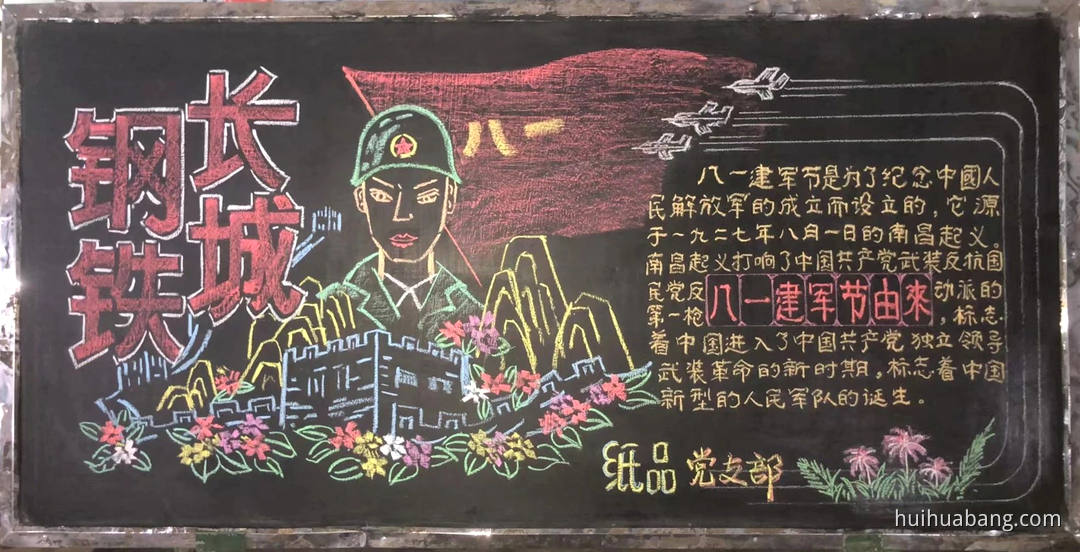 钢铁
长城
八一
八一建军节是为了纪念中國人
民解放军的成立而设立的，它源
于一九二七年八月一日的南昌起义。
南昌起义打响了中国共产党武装反抗国
民党反
动派的
八一建军节由來
第一枪
，标志
着中国进入了中国共产党独立领导
武装革命的新时期。标志着中国
新型的人民军队的诞生。
纸品党支部
huihuabang.com